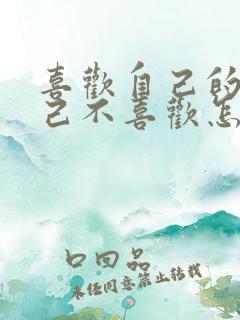 喜歡自己的
己不喜歡怎
口回品
未任同意禁止转载